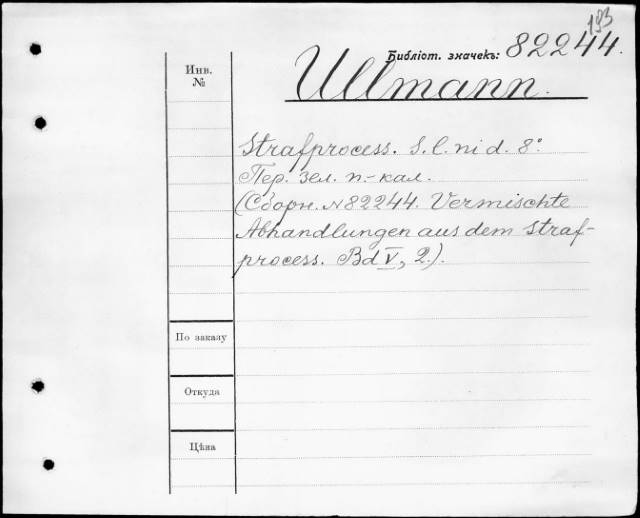 193
Библіот. значекъ: 82244.
Инв. №
Ullmann.
Strafprocess. S. l. ni d. 8º.
Пер. зел. п.-кал.
(Сборн. №82244. Vermischte
Abhandlungen aus dem Straf-
process. Bd V, 2.).
По заказу
Откуда
Цѣна